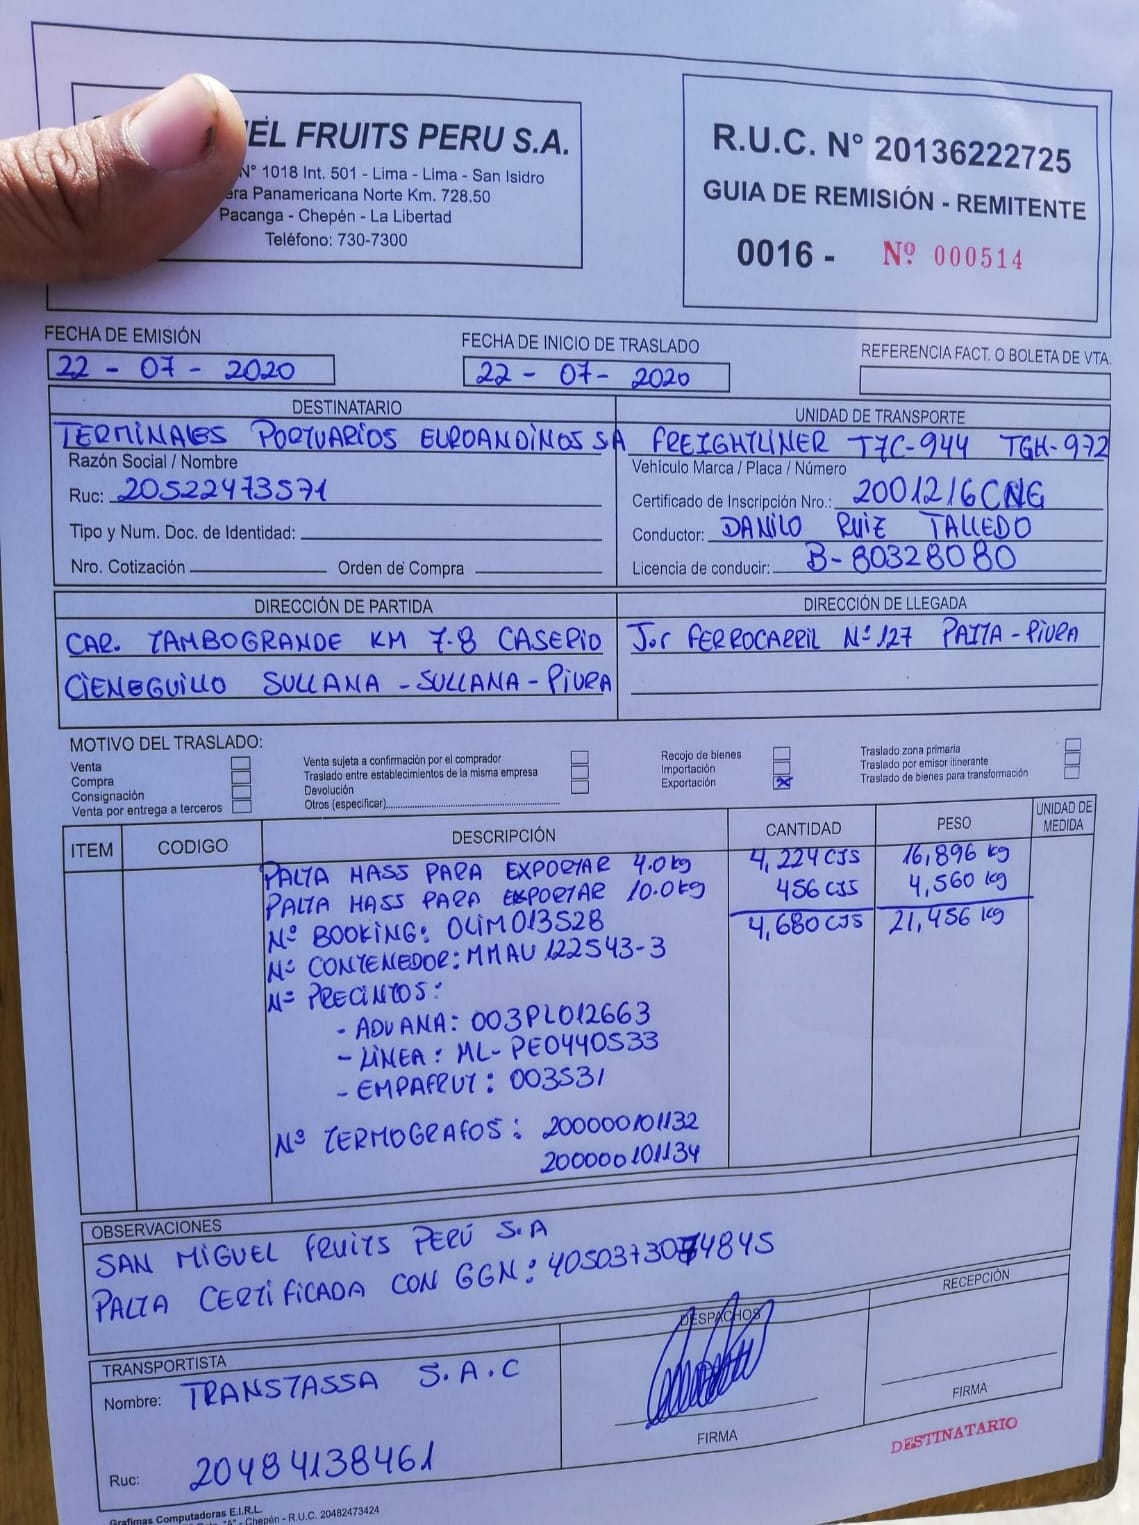 FRUITS PERU S.A.
N° 1018 Int. 501 - Lima - Lima - San Isidro
Panamericana Norte Km. 728.50
Pacanga - Chepén - La Libertad
Teléfono: 730-7300
R.U.C. N° 20136222725
GUIA DE REMISIÓN - REMITENTE
0016 - Nº 000514
FECHA DE EMISIÓN
22 - 07 - 2020
FECHA DE INICIO DE TRASLADO
22 - 07 - 2020
REFERENCIA FACT. O BOLETA DE VTA.
DESTINATARIO
TERMINALES PORTUARIOS EUROANDINOS SA
Razón Social / Nombre
Ruc: 20522473571
Tipo y Num. Doc. de Identidad:
Nro. Cotización Orden de Compra
UNIDAD DE TRANSPORTE
FREIGHTLINER T7C-944 TGH-972
Vehículo Marca / Placa / Número
Certificado de Inscripción Nro.: 2001216CNG
Conductor: DANILO RUIZ TALLEDO
Licencia de conducir: B-80328080
DIRECCIÓN DE PARTIDA
CAR. TAMBOGRANDE KM 7.8 CASERIO
CIENEGUILLO SULLANA - SULLANA - PIURA
DIRECCIÓN DE LLEGADA
Jr FERROCARRIL Nº 127 PAITA - PIURA
MOTIVO DEL TRASLADO:
Venta
Compra
Consignación
Venta por entrega a terceros
Venta sujeta a confirmación por el comprador
Traslado entre establecimientos de la misma empresa
Devolución
Otros (especificar)
Recojo de bienes
Importación
Exportación X
Traslado zona primaria
Traslado por emisor itinerante
Traslado de bienes para transformación
ITEM CODIGO DESCRIPCIÓN CANTIDAD PESO UNIDAD DE MEDIDA
PALTA HASS PARA EXPORTAR 4.0 kg 4,224 CJS 16,896 kg
PALTA HASS PARA EXPORTAR 10.0 kg 456 CJS 4,560 kg
4,680 CJS 21,456 kg
Nº BOOKING: OLIM013528
Nº CONTENEDOR: MMAU 122543-3
Nº PRECINTOS:
- ADUANA: 003PL012663
- LÍNEA: ML-PE0440533
- EMPAFRUT: 003531
Nº TERMOGRAFOS: 200000101132
200000101134
OBSERVACIONES
SAN MIGUEL FRUITS PERÚ S.A
PALTA CERTIFICADA CON GGN: 4050373074845
TRANSPORTISTA
Nombre: TRANSTASSA S.A.C
Ruc: 20484138461
DESPACHOS
FIRMA
RECEPCIÓN
FIRMA
DESTINATARIO
Grafimas Computadoras E.I.R.L.
"A" - Chepén - R.U.C. 20482473424